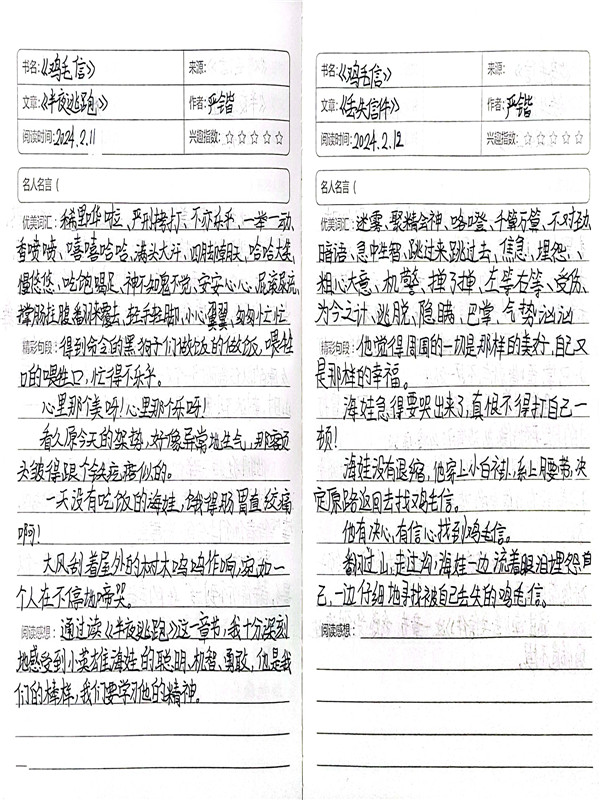 书名:《鸡毛信》 来源:
文章:《半夜逃跑》 作者:严锴
阅读时间:2024.2.11 兴趣指数:☆☆☆☆☆
名人名言(
优美词汇:稀里哗啦、严刑拷打、不亦乐乎、一举一动、
香喷喷、嘻嘻哈哈、满头大汗、四脚朝天、哈哈大笑、
慢悠悠、吃饱喝足、神不知鬼不觉、安安心心、屁滚尿流、
撑肠拄腹、翻来覆去、轻手轻脚、小心翼翼、匆匆忙忙
精彩句段:得到命令的黑狗子们做饭的做饭,喂牲
口的喂牲口,忙得不乐乎。
心里那个美呀!心里那个乐呀!
看久原今天的架势,好像异常地生气,那额
头皱得跟个铁疙瘩似的。
一天没有吃饭的海娃,饿得肠胃直绞痛
啊!
大风刮着屋外的树木呜呜作响,宛如一
个人在不停地啼哭。
阅读感想:通过读《半夜逃跑》这一章节,我十分深刻
地感受到小英雄海娃的聪明、机智、勇敢,他是我
们的榜样,我们要学习他的精神。
书名:《鸡毛信》 来源:
文章:《丢失信件》 作者:严锴
阅读时间:2024.2.12 兴趣指数:☆☆☆☆☆
名人名言(
优美词汇:迷雾、聚精会神、咯噔、千算万算、不对劲、
暗语、急中生智、跳过来跳过去、焦急、埋怨、、
粗心大意、机警、掸了掸、左等右等、受伤、
为今之计、逃脱、隐瞒、巴掌、气势汹汹
精彩句段:他觉得周围的一切是那样的美好,自己又
是那样的幸福。
海娃急得要哭出来了,真恨不得打自己一
顿!
海娃没有退缩,他穿上小白褂,系上腰带,决
定原路返回去找鸡毛信。
他有决心,有信心找到鸡毛信。
翻过山,走过沟,海娃一边流着眼泪埋怨自
己,一边仔细地寻找被自己丢失的鸡毛信。
阅读感想: